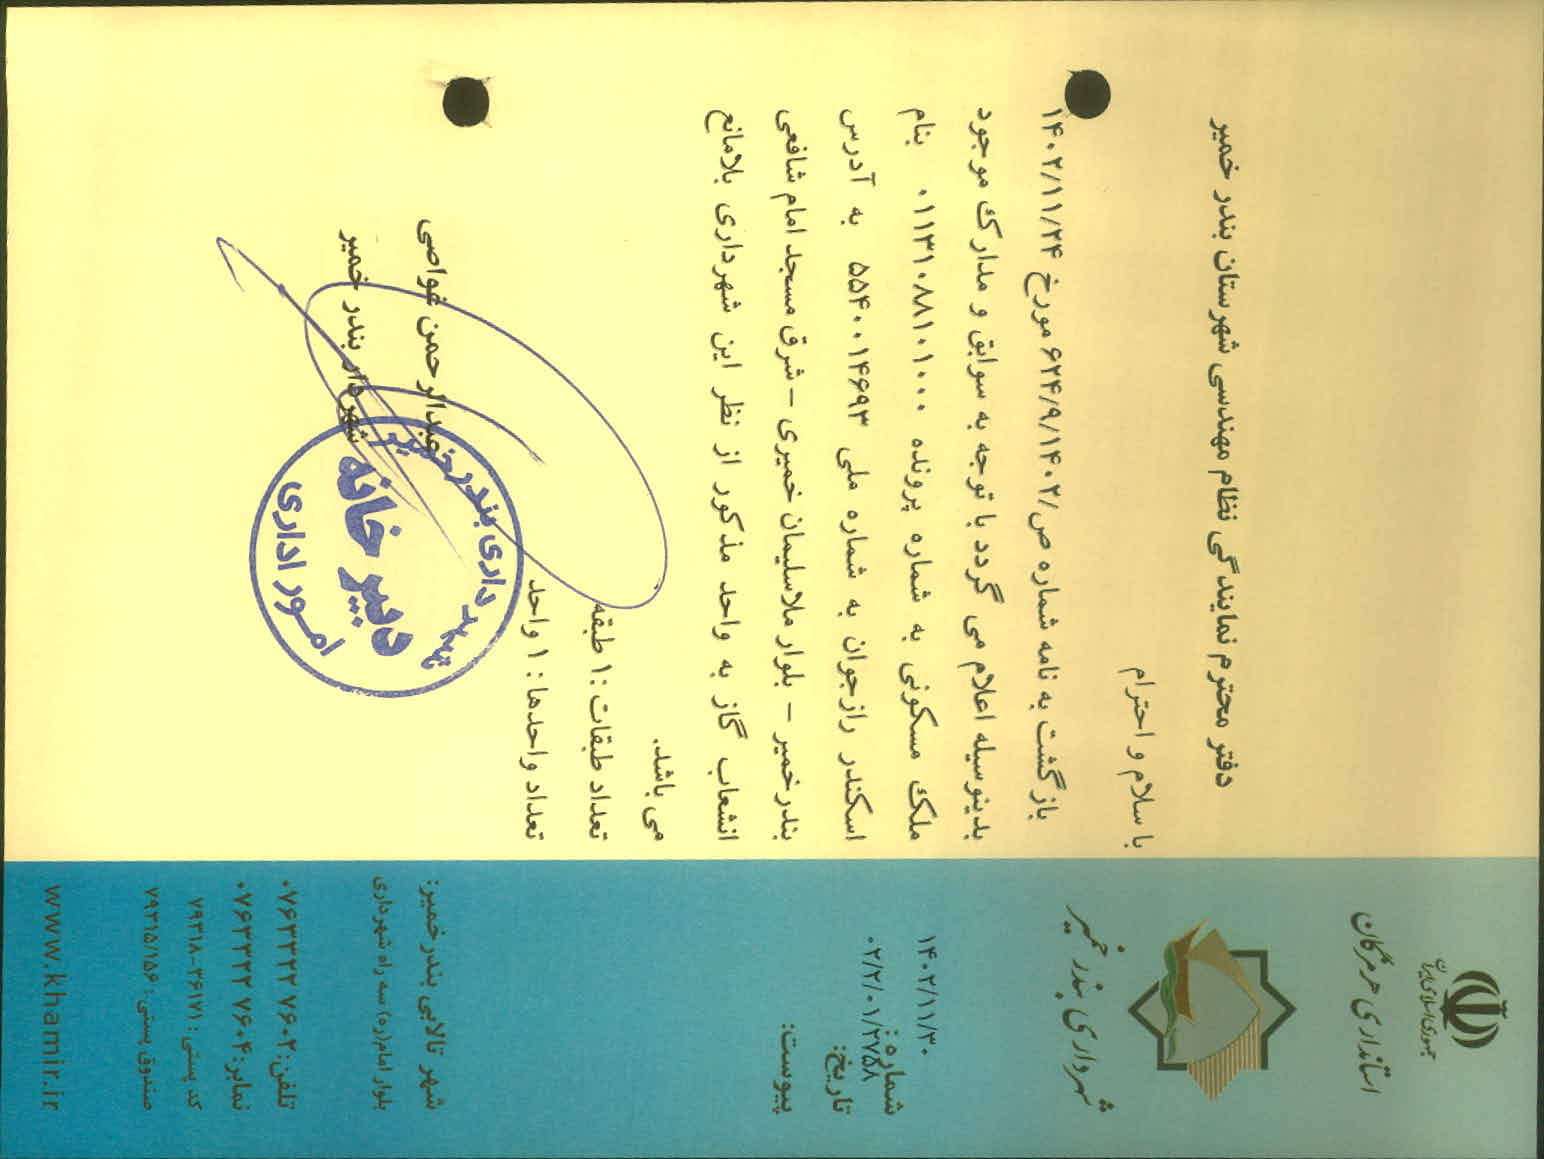 جمهوری اسلامی ایران
استانداری هرمزگان
شهرداری بندر خمیر
۱۴۰۲/۱۱/۳۰
۰۲/۲/۰۱/۲۷۵۸
شماره:
تاریخ:
پیوست:
دفتر محترم نمایندگی نظام مهندسی شهرستان بندر خمیر
با سلام و احترام
بازگشت به نامه شماره ص/۶۲۴/۹/۱۴۰۲ مورخ ۱۴۰۲/۱۱/۲۴
بدینوسیله اعلام می گردد با توجه به سوابق و مدارک موجود
ملک مسکونی به شماره پرونده ۰۱۱۳۱۰۸۸۱۰۱۰۰۰ بنام
اسکندر رازجوان به شماره ملی ۵۵۴۰۰۱۴۶۹۳ به آدرس
بندرخمیر – بلوار ملاسلیمان خمیری – شرق مسجد امام شافعی
انشعاب گاز به واحد مذکور از نظر این شهرداری بلامانع
می باشد.
تعداد طبقات : ۱ طبقه
تعداد واحدها : ۱ واحد
عبدالرحمن غواصی
شهردار بندر خمیر
شهرداری بندر خمیر
دبیر خانه
امور اداری
شهر تالابی بندرخمیر:
بلوار امام(ره) سه راه شهرداری
تلفن: ۰۷۶۳۳۲۲ ۷۶۰۲
نمابر: ۰۷۶۳۳۲۲ ۷۶۰۴
کد پستی : ۳۶۱۷۱-۷۹۳۱۸
صندوق پستی : ۷۹۳۱۵/۱۵۶
www.khamir.ir